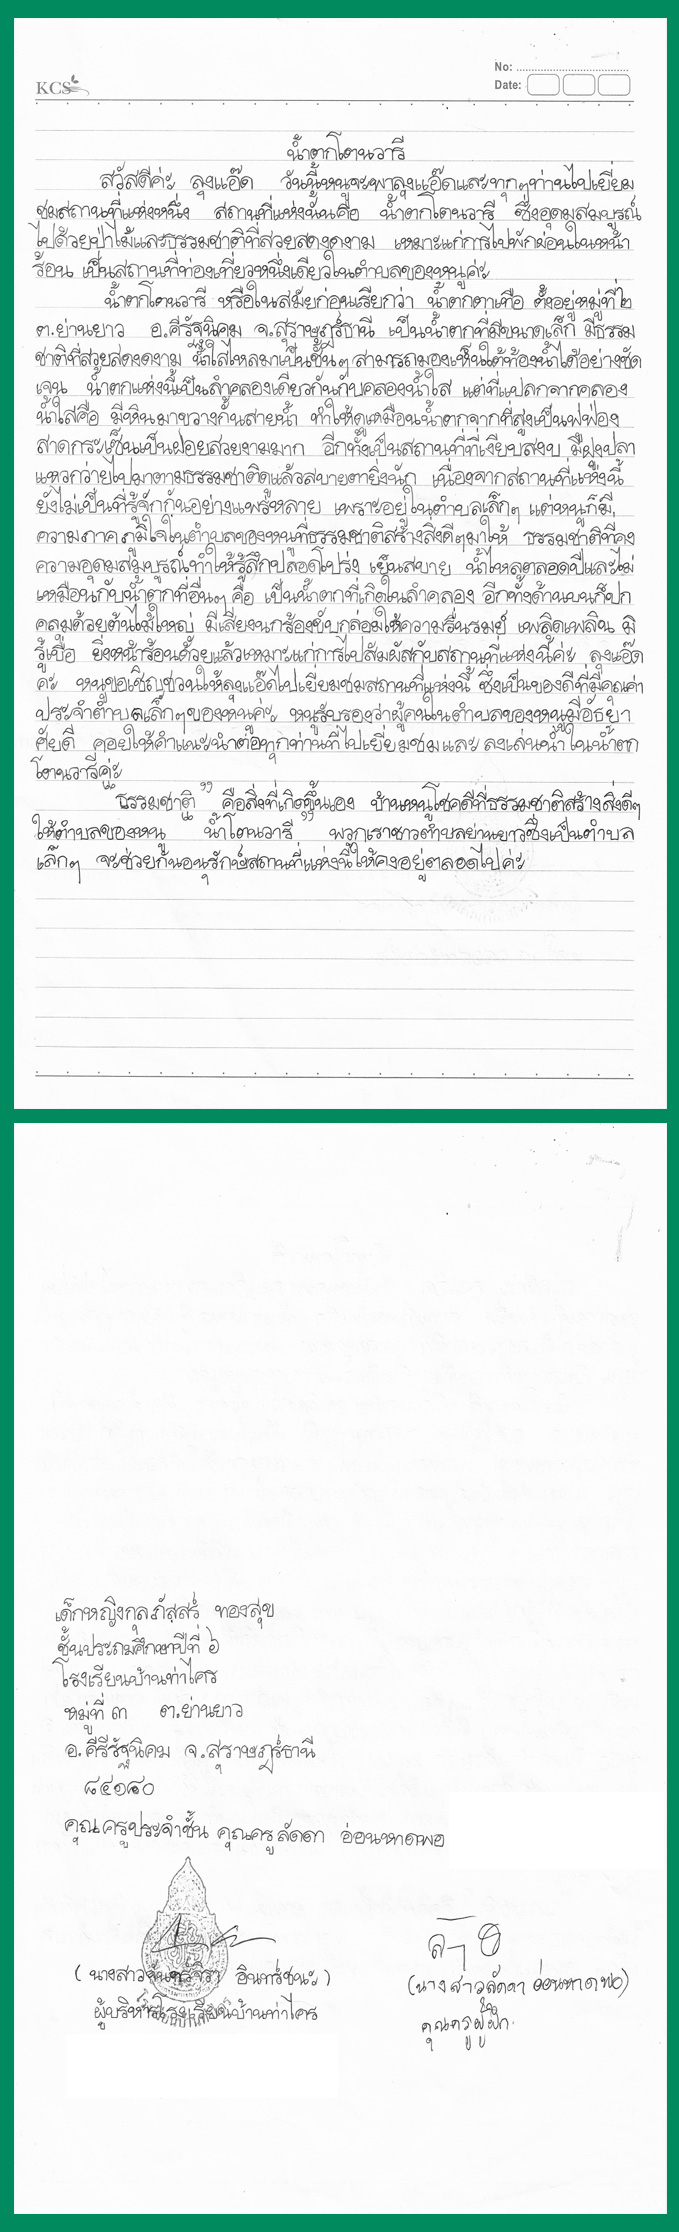 KCS
No:
Date:
น้ำตกโตนวารี
สวัสดีค่ะ ลุงแอ๊ด วันนี้หนูจะพาลุงแอ๊ดและทุกๆท่านไปเยี่ยม
ชมสถานที่แห่งหนึ่ง สถานที่แห่งนั้นคือ น้ำตกโตนวารี ซึ่งอุดมสมบูรณ์
ไปด้วยป่าไม้และธรรมชาติที่สวยสดงดงาม เหมาะแก่การไปพักผ่อนในหน้า
ร้อน เป็นสถานที่ท่องเที่ยวหนึ่งเดียวในตำบลของหนูค่ะ
น้ำตกโตนวารี หรือในสมัยก่อนเรียกว่า น้ำตกตาเทือ ตั้งอยู่หมู่ที่๒
ต.ย่านยาว อ.คีรีรัฐนิคม จ.สุราษฎร์ธานี เป็นน้ำตกที่มีขนาดเล็ก มีธรรม
ชาติที่สวยสดงดงาม น้ำใสไหลมาเป็นชั้นๆ สามารถมองเห็นใต้ท้องน้ำได้อย่างชัด
เจน น้ำตกแห่งนี้เป็นลำคลองเดียวกันกับคลองน้ำใส แต่ที่แปลกจากคลอง
น้ำใสคือ มีหินมาขวางกั้นสายน้ำ ทำให้ดูเหมือนน้ำตกจากที่สูงเป็นฟูฟ่อง
สาดกระเซ็นเป็นฝอยสวยงามมาก อีกทั้งเป็นสถานที่ที่เงียบสงบ มีฝูงปลา
แหวกว่ายไปมาตามธรรมชาติดูแล้วสบายตายิ่งนัก เนื่องจากสถานที่แห่งนี้
ยังไม่เป็นที่รู้จักกันอย่างแพร่หลาย เพราะอยู่ในตำบลเล็กๆ แต่หนูก็มี
ความภาคภูมิใจในตำบลของหนูที่ธรรมชาติสร้างสิ่งดีๆมาให้ ธรรมชาติที่คง
ความอุดมสมบูรณ์ทำให้รู้สึกปลอดโปร่ง เย็นสบาย น้ำไหลตลอดปีและไม่
เหมือนกับน้ำตกที่อื่นๆ คือ เป็นน้ำตกที่เกิดในลำคลอง อีกทั้งด้านบนก็ปก
คลุมด้วยต้นไม้ใหญ่ มีเสียงนกร้องขับกล่อมให้ความรื่นรมย์ เพลิดเพลิน มิ
รู้เบื่อ ยิ่งหน้าร้อนด้วยแล้วเหมาะแก่การไปสัมผัสกับสถานที่แห่งนี้ค่ะ ลุงแอ๊ด
คะ หนูขอเชิญชวนให้ลุงแอ๊ดไปเยี่ยมชมสถานที่แห่งนี้ ซึ่งเป็นของดีที่มีคุณค่า
ประจำตำบลเล็กๆของหนูค่ะ หนูรับรองว่าผู้คนในตำบลของหนูมีอัธยา
ศัยดี คอยให้คำแนะนำต่อทุกท่านที่ไปเยี่ยมชมและลงเล่นน้ำในน้ำตก
โตนวารีค่ะ
"ธรรมชาติ" คือสิ่งที่เกิดขึ้นเอง บ้านหนูโชคดีที่ธรรมชาติสร้างสิ่งดีๆ
ให้ตำบลของหนู น้ำโตนวารี" พวกเราชาวตำบลย่านยาวซึ่งเป็นตำบล
เล็กๆ จะช่วยกันอนุรักษ์สถานที่แห่งนี้ให้คงอยู่ตลอดไปค่ะ
เด็กหญิงกุลภัสสร์ ทองสุข
ชั้นประถมศึกษาปีที่ ๖
โรงเรียนบ้านท่าไคร
หมู่ที่ ๓ ต.ย่านยาว
อ.คีรีรัฐนิคม จ.สุราษฎร์ธานี
๘๔๑๘๐
คุณครูประจำชั้น คุณครูลัดดา อ่อนหาดพอ
(นางสาวจันทร์จิรา อินทร์ชนะ)
ผู้บริหารโรงเรียนบ้านท่าไคร
(นางสาวลัดดา อ่อนหาดพอ)
คุณครูผู้ฝึก